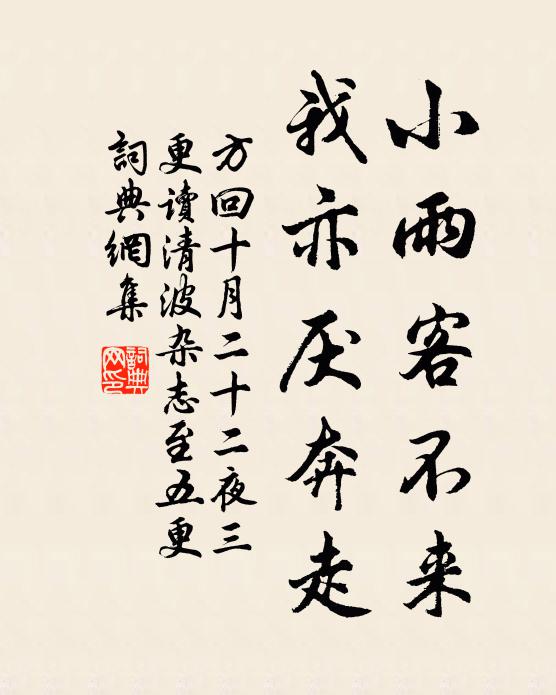 小雨客不来
我亦厌奔走
方回十月二十二夜三
更读清波杂志至五更
詞典網集
詞典网印